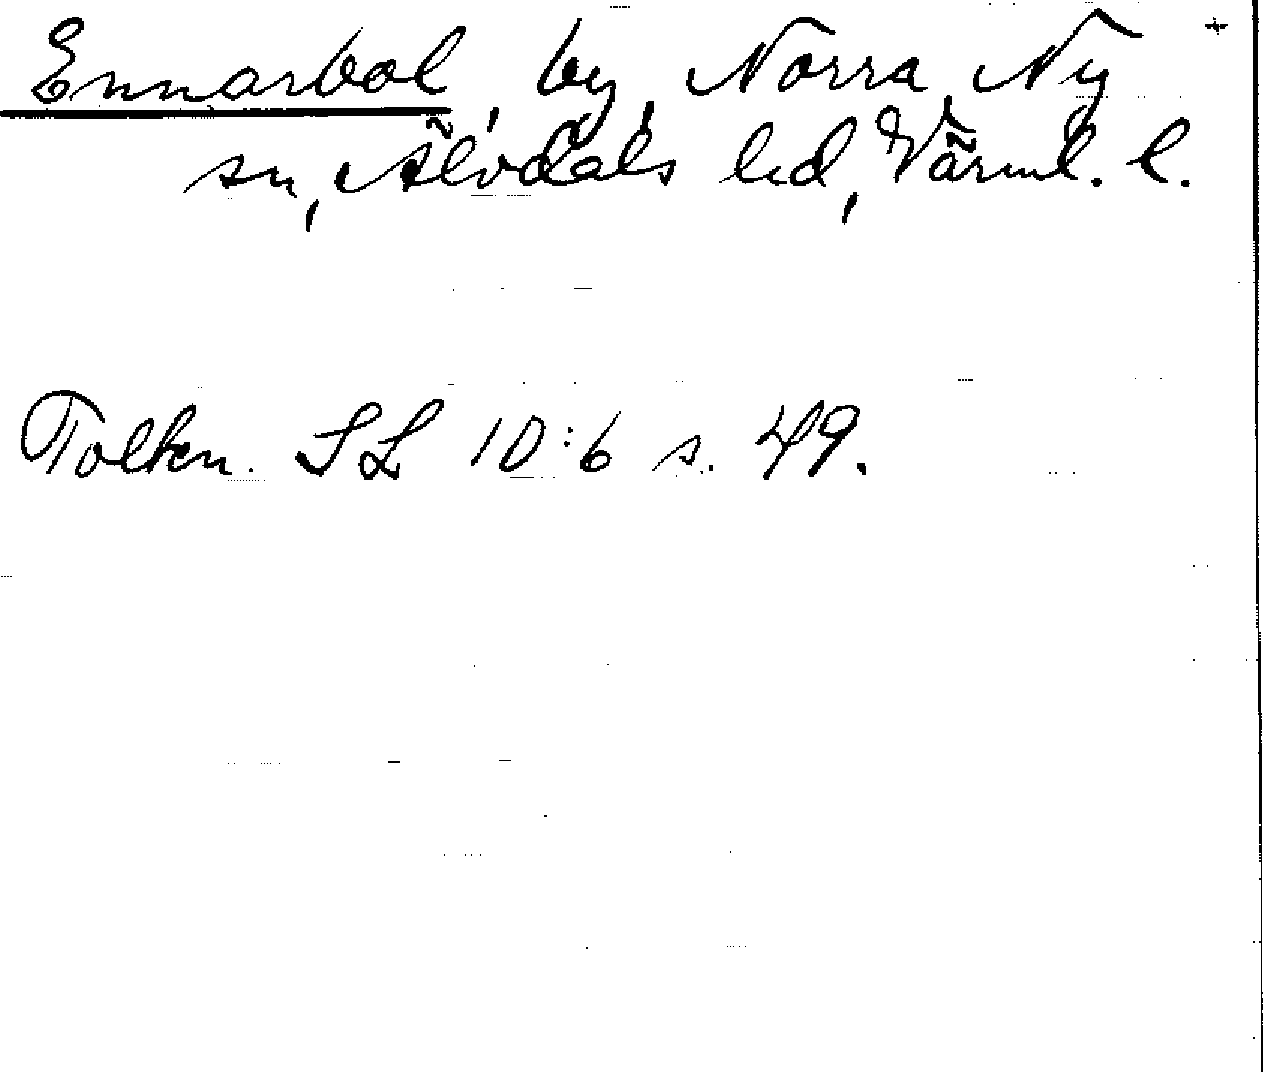 Ennarbol, by, Norra Ny
sn, Älvdals hd, Värml. l.
Tolkn. SL 10:6 s. 49.